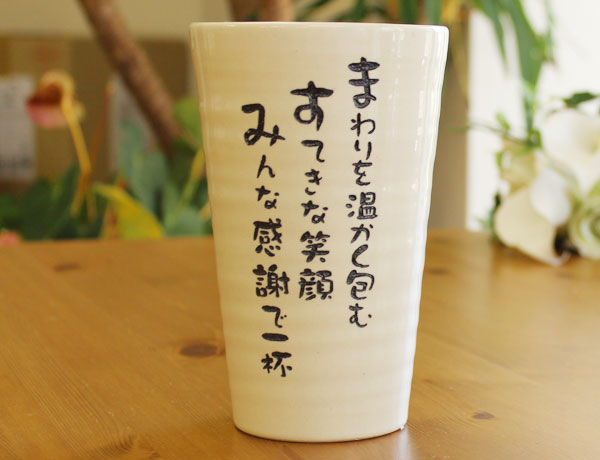 まわりを温かく包む
すてきな笑顔
みんな感謝で一杯